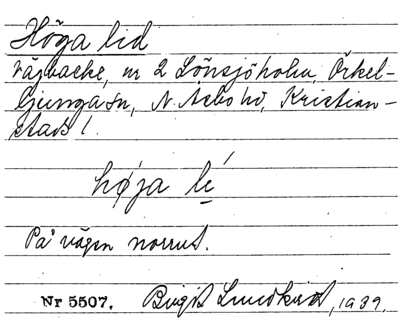 Höga lid
Vägbacke, nr 2 Lönsjöholm, Örkel-
ljunga sn, N. Åsbo hd, Kristian-
stads l.
høja lé
På vägen norrut.
Nr 5507. Birgit Lundkvist, 1939.